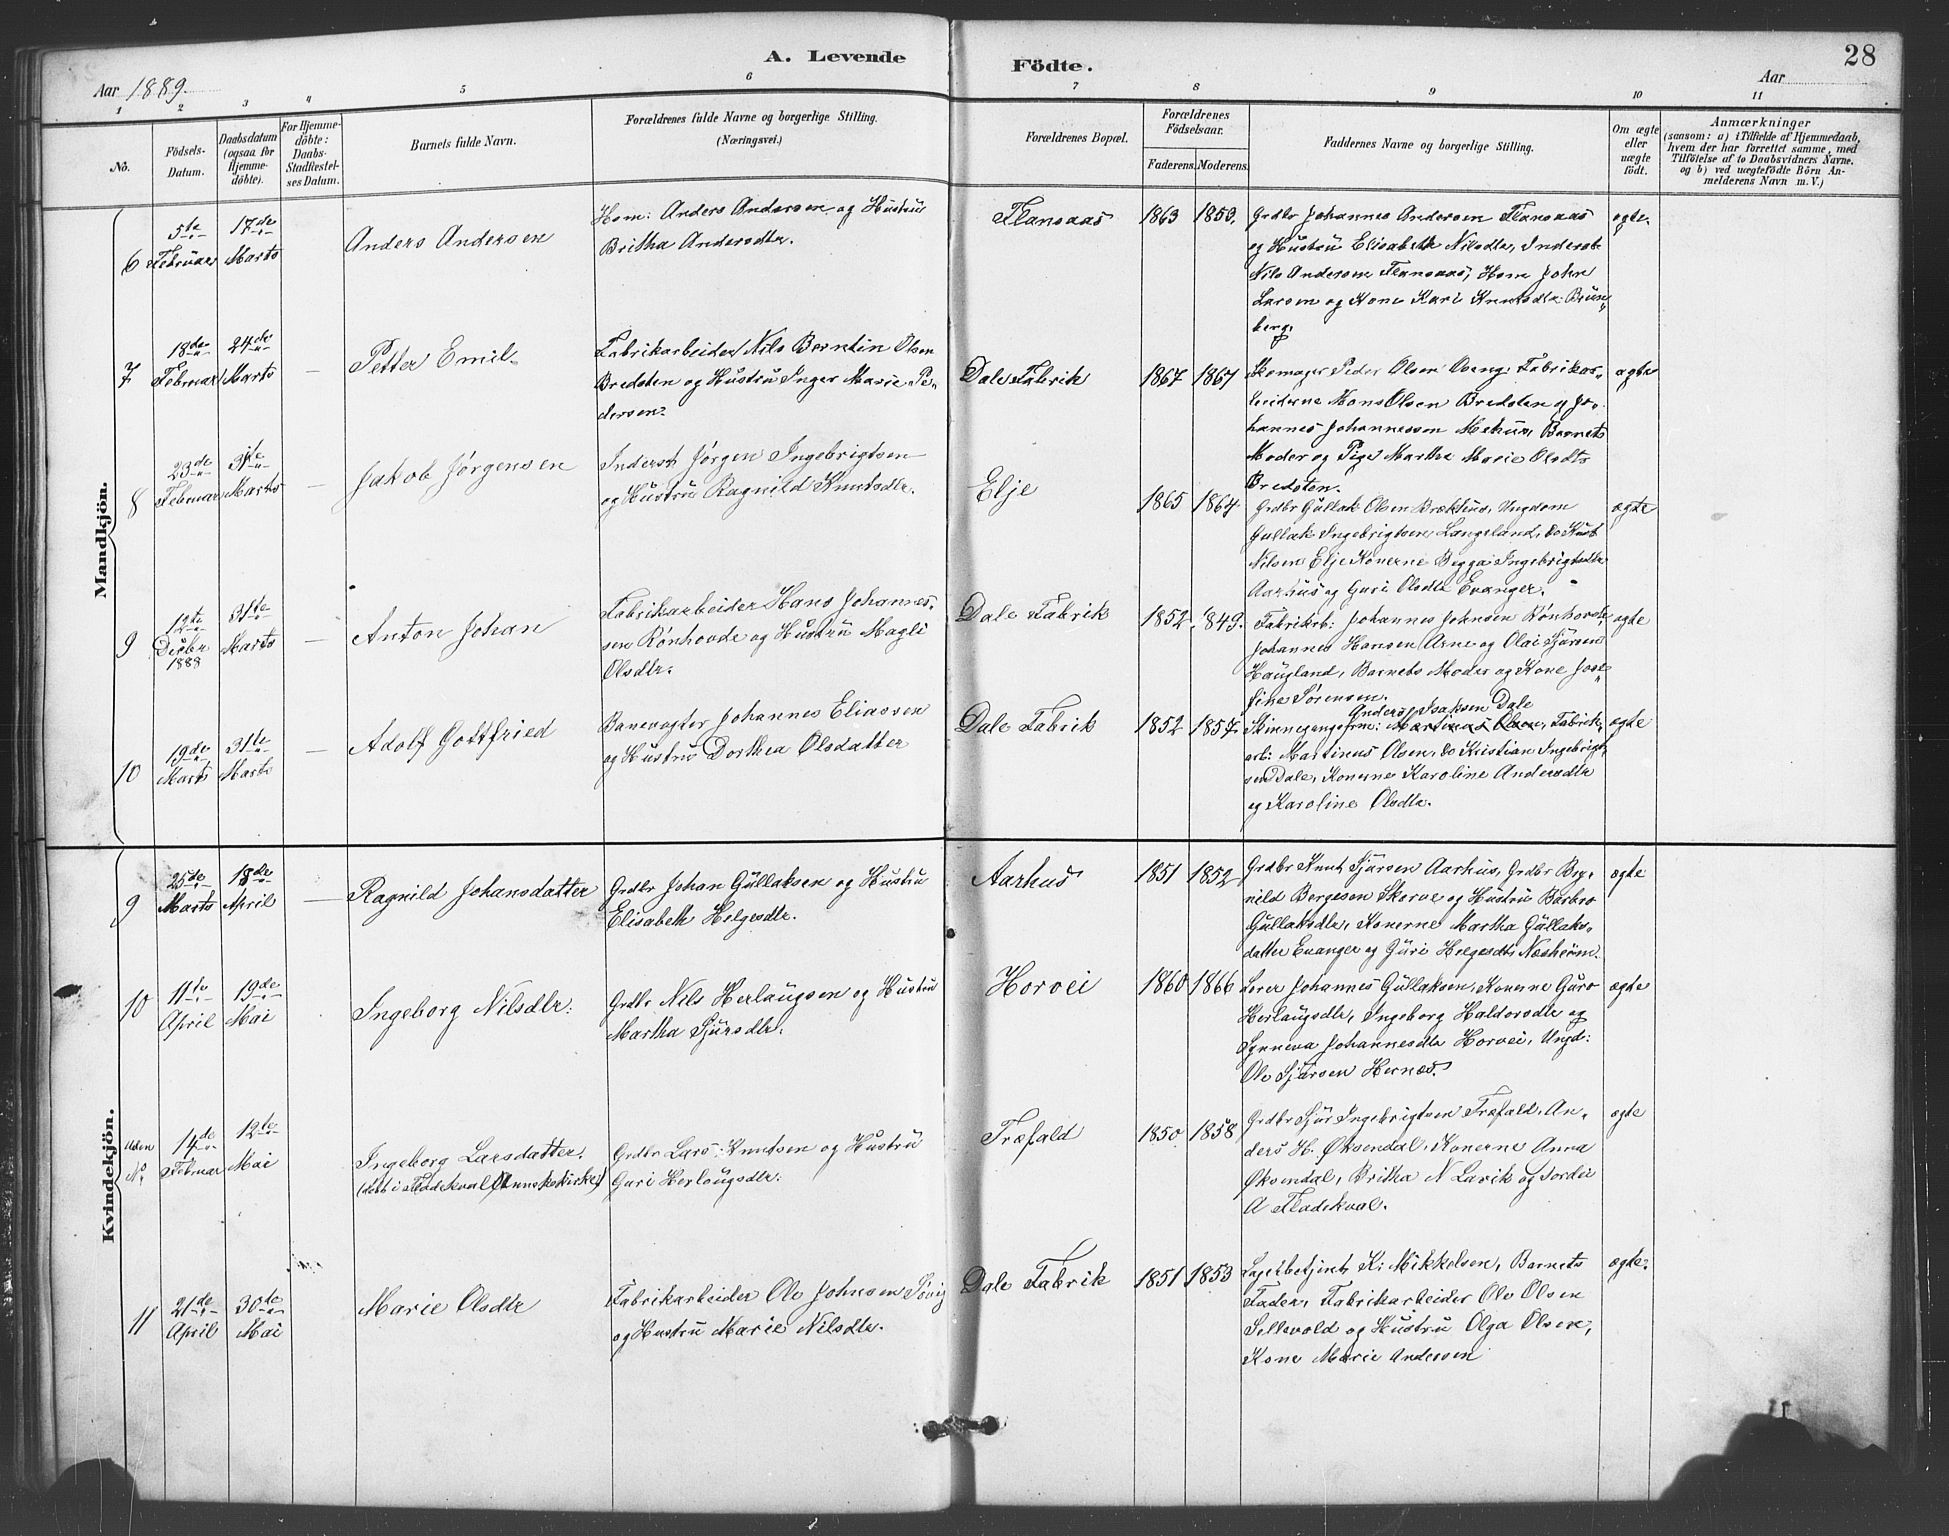 A. Levende Födte.
28
Aar 1889.
Aar
1 2 3 4 5 6 7 8 9 10 11
No.
Födsels-Datum.
Daabsdatum (ogsaa for Hjemme-döbte).
For Hjemme-döbte: Daabs-Stadfæstel-ses Datum.
Barnets fulde Navn.
Forældrenes fulde Navne og borgerlige Stilling.
(Næringsvei.)
Forældrenes Bopæl.
Forældrenes Födselsaar.
Faderens. Moderens.
Faddernes Navne og borgerlige Stilling.
Om ægte eller uægte födt.
Anmærkninger
(saasom: a) i Tilfælde af Hjemmedaab,
hvem der har forrettet samme, med
Tilföielse af to Daabsvidners Navne.
og b) ved uægtefödte Börn An-
melderens Navn m. V.)
Mandkjön.
6
5te Februar
17de Marts
Anders Andersen
Hsm: Anders Andersen og Hustru
Britha Andersdtr.
Flansaas
1863 1859.
Grdbr Johannes Andersen Flansaas
og Hustru Elisabeth Nilsdtr, Inderst
Nils Andersen Flansaas, Hsm John
Larsen og Kone Kari Knutsdtr Brun„
berg.
ægte.
7
18de Februar
24de Marts
—
Petter Emil
Fabrikarbeider Nils Berntin Olsen
Bredsten og Hustru Inger Marie Pe„
dersen.
Dale Fabrik
1867 1867
Skomager Peder Olsen Øeng, Fabrikar„
beiderne Hans Olsen Bredsten og Jo„
hannes Johannessen Mehus, Barnets
Moder og Pige Martha Marie Olsdtr
Bredsten.
ægte
8
23de Februar
31te Marts
—
Jakob Jørgensen
Inderst Jørgen Ingebrigtsen
og Hustru Ragnild Knutsdtr.
Elje
1865 1864.
Grdbr Gullak Olsen Brækhus, Ungdom
Gullak Ingebrigtsen Langeland, do Knut
Nilsen Elje Konerne Begga Ingebrigtsdtr
Aarhus og Guri Olsdtr Evanger.
ægte
9
12te Decbr 1888
31te Marts
—
Anton Johan
Fabrikarbeider Hans Johannes„
sen Rønhovde og Hustru Magli
Olsdtr.
Dale Fabrik
1852. 1849.
Fabrikarb: Johannes Johnsen Rønhovde
Johannes Hansen Arne og Olai Sjursen
Haugland, Barnets Moder og Kone Jose„
fine Sørensen.
ægte
10
19de Marts
31te Marts
—
Adolf Gottfried
Banevogter Johannes Eliassen
og Hustru Dorthea Olsdatter
Dale Fabrik
1852 1857.
Anders Isaksen Dale
Skinnegangsfrm: Martinus Olsen, Fabrik„
arb: Martinus Olsen, do Kristian Ingebrigt„
sen Dale, Konerne Karoline Andersdtr
og Karoline Olsdtr.
ægte
Kvindekjön.
9
25de Marts
18de April
—
Ragnild Johansdatter
Grdbr Johan Gullaksen og Hustru
Elisabeth Helgesdtr.
Aarhus
1851 1852
Grdbr Knut Sjursen Aarhus, Grdbr Bry„
nild Bergesen Skorve og Hustru Barbro
Gullaksdtr, Konerne Martha Gullaks„
datter Evanger og Guri Helgesdtr Næsheim.
ægte
10
11te April
19de Mai
Ingeborg Nilsdtr.
Grdbr Nils Herlaugsen og Hustru
Martha Sjursdtr.
Horvei
1860 1866
Lærer Johannes Gullaksen, Konerne Guro
Herlaugsdtr, Ingeborg Haldorsdtr og
Synneva Johannesdtr Horvei, Ungd:
Ole Sjursen Hernes.
ægte
Uden No.
14de Februar
12te Mai
Ingeborg Larsdatter.
(døbt i Fladekval Annekskirke)
Grdbr Lars Knutsen og Hustru
Guri Herlougsdtr.
Træfald
1850. 1858
Grdbr Sjur Ingebrigtsen Træfald, An„
ders H. Øksendal, Konerne Anna
Øksendal, Britha N Larik og Jordei
A Fladekval.
ægte
11
21de April
30de Mai
Marie Olsdtr
Fabrikarbeider Ole Johnsen Søvig
og Hustru Marie Nilsdtr.
Dale Fabrik
1851 1853
Lagerbetjent K. Mikkelsen, Barnets
Fader, Fabrikarbeider Ole Olsen
Sellevold og Hustru Olga Olsen,
Kone Marie Andersen
ægte.